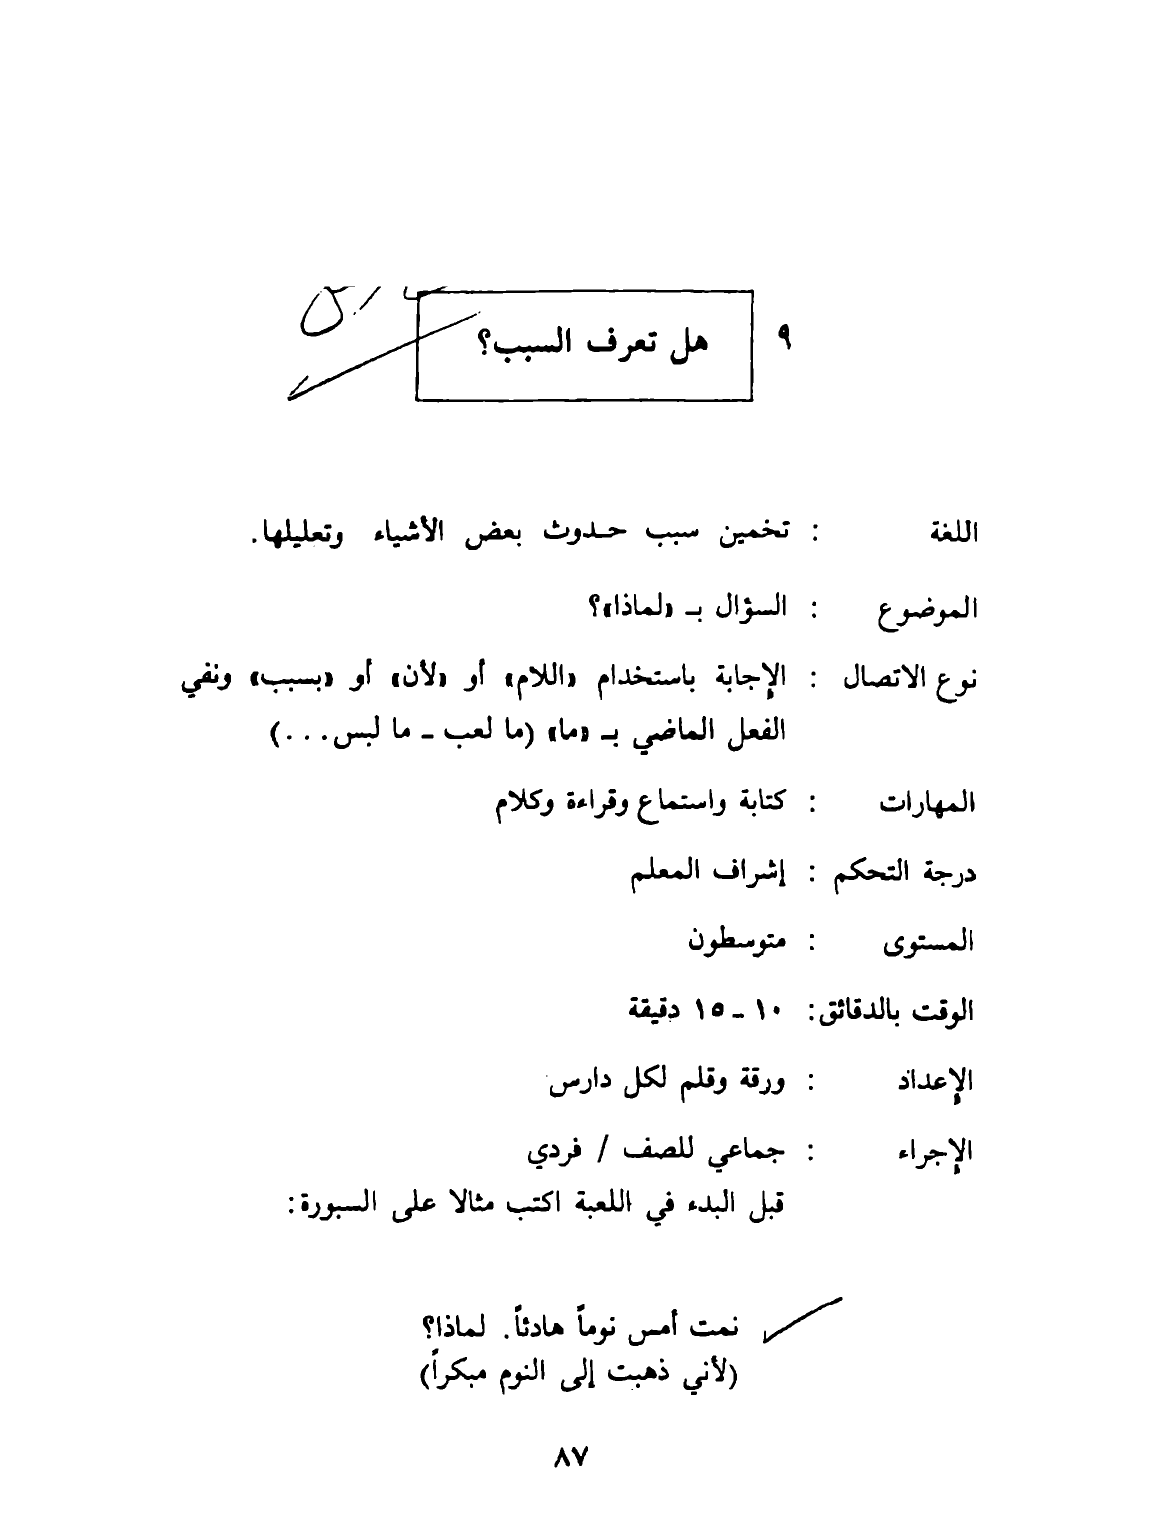 ٩ هل تعرف السبب؟
اللغة : تخمين سبب حـدوث بعض الأشياء وتعليلها.
الموضوع : السؤال بـ «لماذا»؟
نوع الاتصال : الإجابة باستخدام «اللام» أو «لأن» أو «بسبب» ونفي
الفعل الماضي بـ «ما» (ما لعب ـ ما لبس...)
المهارات : كتابة واستماع وقراءة وكلام
درجة التحكم : إشراف المعلم
المستوى : متوسطون
الوقت بالدقائق: ١٠ ـ ١٥ دقيقة
الإعداد : ورقة وقلم لكل دارس
الإجراء : جماعي للصف / فردي
قبل البدء في اللعبة اكتب مثالا على السبورة:
نمت أمس نوماً هادئاً. لماذا؟
(لأني ذهبت إلى النوم مبكراً)
٨٧